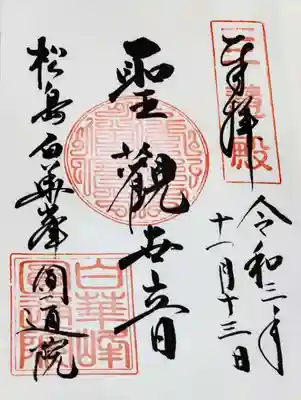 奉拝
三慧殿
令和三年
十一月十三日
聖觀世音
松島白華峯
圓通院
白華峰
圓通院